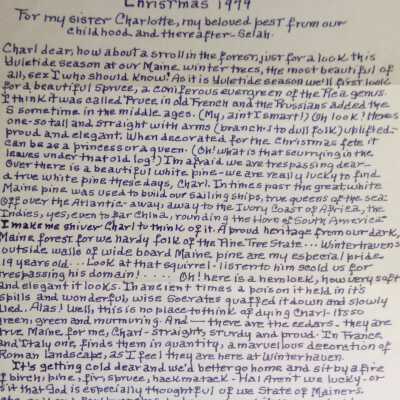 Christmas 1979
For my sister Charlotte, my beloved pest from our
childhood and thereafter - Selah.
Charl dear, how about a stroll in the forest, just for a look this
Yuletide season at our Maine winter trees, the most beautiful of
all, sex I who should know! As it is Yuletide season we'll first look
for a beautiful spruce, a coniferous evergreen of the Picea genus.
I think it was called Pruce in old French and the Prussians added the
S sometime in the middle ages. (My, aint I smart!) Oh look! Heres
one - so tall and straight with arms (branch's to dull folk) uplifted -
proud and elegant. When decorated for the Christmas fete it
can be as a princess or a queen. (Oh! whats that scurrying in the
leaves under that old log?) I'm afraid we are trespassing dear -
Over there is a beautiful white pine - we are really lucky to find
a true white pine these days, Charl. In times past the great white
Maine pine was used to build our sailing ships, true queens of the sea
off over the Atlantic - away, away to the Ivory Coast of Africa, the
Indies, yes, even to far China, rounding the Horn of South America
I make me shiver Charl to think of it. A proud heritage from our dark,
Maine forest for we hardy folk of the Pine Tree State... Winterhavens
outside walls of wide board Maine pine are my especial pride
19 years old... Look at that squirrel - listen to him scold us for
trespassing his domain! .... Oh! here is a hemlock, how very soft
and elegant it looks. In ancient times a poison it held in its
spills and wonderful, wise Socrates quaffed it down and slowly
died. Alas! Well, this is no place to think of dying Charl - its so
green, green and murmuring. And — there are the cedars - they are
true Maine for me, Charl - Straight, sturdy and proud. In France
and Italy one, finds them in quantity, a marvelous decoration of
Roman landscape, as I feel they are here at Winterhaven.
It's getting cold dear and we'd better go home and sit by a fire
of birch, pine, fir, spruce, hackmatack - Ha! Arent we lucky - or
is it that God is especially thoughtful of we State of Mainers.